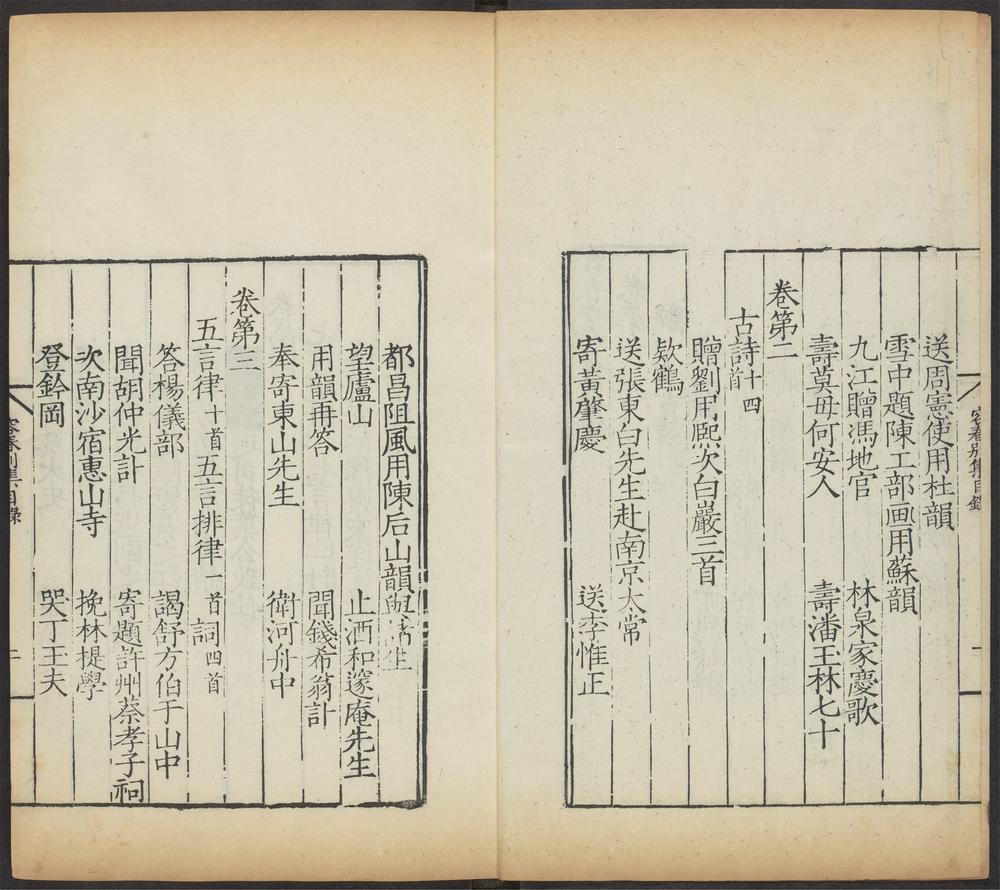 容春別集目錄
一
送周憲使用杜韻
雪中題陳工部画用蘇韻
九江贈馮地官 林泉家慶歌
壽莫母何安人 壽潘王林七十
卷第二
古詩十四首
贈劉用熙次白巖三首
欵鶴
送張東白先生赴南京太常
寄黃肇慶 送李惟正
都昌阻風用陳后山韻與諸生
望廬山 止酒和邃庵先生
用韻冉答 聞錢希翁訃
奉寄東山先生 衛河舟中
卷第三
五言律十首五言排律一首詞四首
答楊儀部 謁舒方伯于山中
聞胡仲光訃 寄題許州蔡孝子祠
次南沙宿惠山寺 挽林提學
登鈐岡 哭丁王夫
容春別集目錄
二